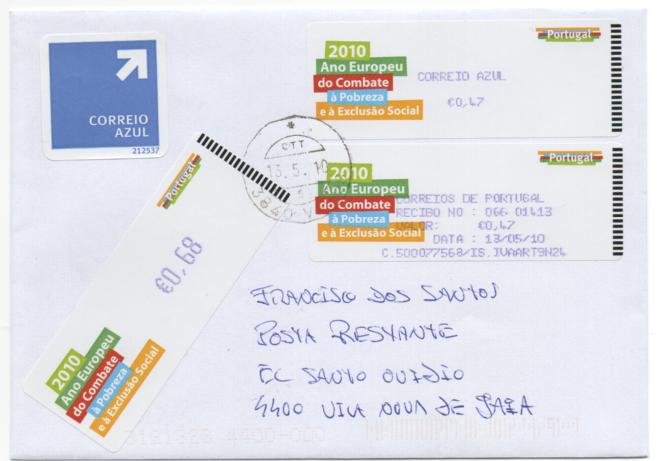 CORREIO
AZUL
212537
Portugal
2010
Ano Europeu
do Combate
à Pobreza
e à Exclusão Social
CORREIO AZUL
€0,47
Portugal
2010
Ano Europeu
do Combate
à Pobreza
e à Exclusão Social
CORREIOS DE PORTUGAL
RECIBO NO : 066 01413
VALOR: €0,47
DATA : 13/05/10
C.500077568/IS.IVAART9N24
CTT
13.5.10
3840
Portugal
€0,68
2010
Ano Europeu
do Combate
à Pobreza
e à Exclusão Social
FRANCISCO DOS SANTOS
POSTA RESTANTE
EC SANTO OVIDIO
4400 VILA NOVA DE GAIA
4400-000